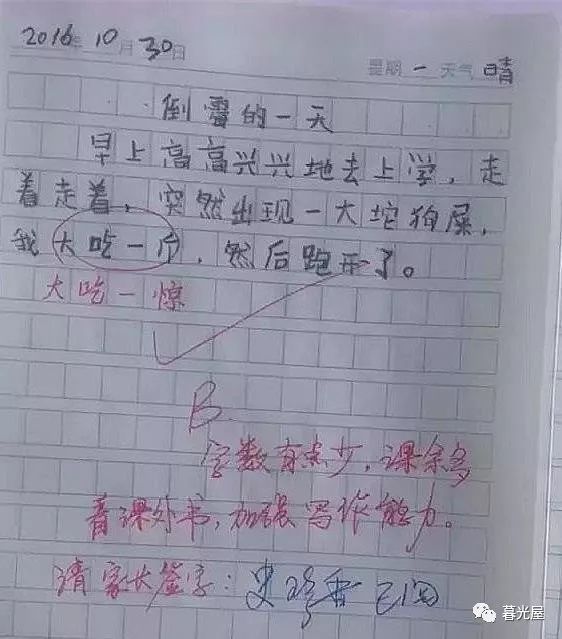 2016年10月30日
星期一 天气晴
倒霉的一天
早上高高兴兴地去上学，走
着走着，突然出现一大坨狗屎，
我大吃一斤，然后跑开了。
大吃一惊
B
字数有点少，课余多
看课外书，加强写作能力。
请家长签字：史珍香 已阅
暮光屋